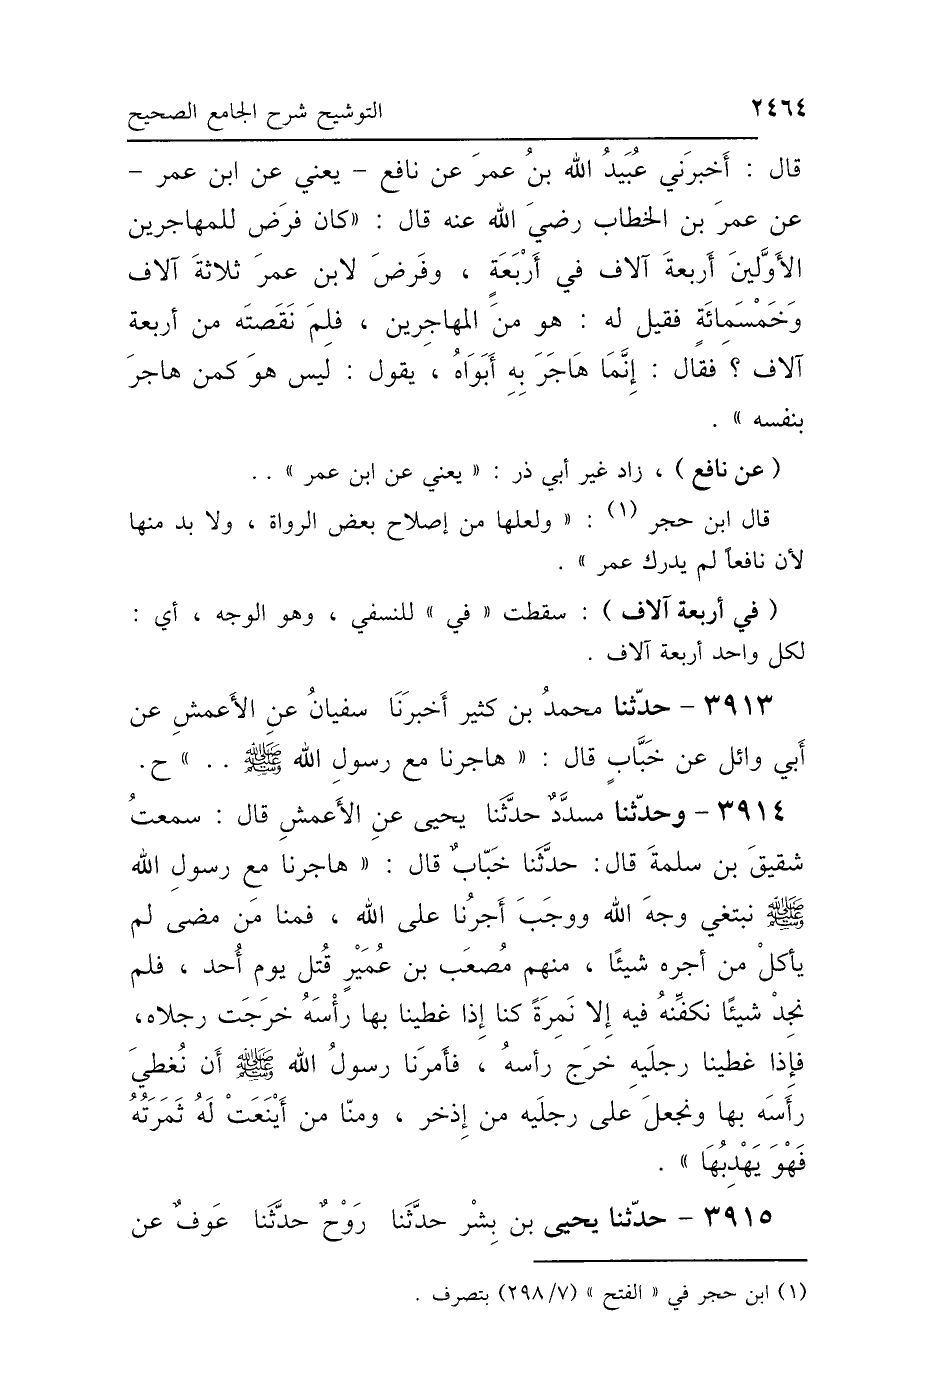 ٢٤٦٤ التوشيح شرح الجامع الصحيح
قال : أَخبرَني عُبَيدُ الله بنُ عمرَ عن نافع – يعني عن ابن عمر –
عن عمرَ بن الخطاب رضيَ الله عنه قال : «كان فرَض للمهاجرين
الأوَّلينَ أربعةَ آلاف في أرْبَعَةٍ ، وفَرضَ لابن عمرَ ثلاثةَ آلاف
وَخَمْسَمِائَةٍ فقيل له : هو منَ المهاجِرين ، فلِمَ نَقَصتَه من أربعة
آلاف ؟ فقال : إنَّمَا هَاجَرَ بِهِ أَبَوَاهُ ، يقول : ليس هوَ كمن هاجرَ
بنفسه » .
( عن نافع ) ، زاد غير أبي ذر : « يعني عن ابن عمر » . .
قال ابن حجر (١) : « ولعلها من إصلاح بعض الرواة ، ولا بد منها
لأن نافعاً لم يدرك عمر » .
( في أربعة آلاف ) : سقطت « في » للنسفي ، وهو الوجه ، أي :
لكل واحد أربعة آلاف .
٣٩١٣ – حدّثنا محمدُ بن كثير أَخبرَنَا سفيانُ عنِ الأَعمشِ عن
أبي وائل عن خَبَّابٍ قال : « هاجرنا مع رسولِ الله ﷺ . . » ح.
٣٩١٤ – وحدّثنا مسدَّدٌ حدَّثَنا يحيى عنِ الأَعمشِ قال : سمعتُ
شقيقَ بن سلمةَ قال: حدَّثَنا خَبّابٌ قال : « هاجرنا مع رسولِ الله
ﷺ نبتغي وجهَ الله ووجَبَ أجرُنا على الله ، فمنا مَن مضى لم
يأكلْ من أجره شيئًا ، منهم مُصعَب بن عُمَيْرٍ قُتل يوم أُحد ، فلم
نجِدْ شيئًا نكفِّنهُ فيه إلا نَمرَةً كنا إذا غطينا بها رأْسَهُ خرجَت رجلاه،
فإذا غطينا رجلَيهِ خرَج رأسهُ ، فأمرَنا رسولُ الله ﷺ أن نُغطيَ
رأسَه بها ونجعلَ على رجلَيه من إذخر ، ومنّا من أَيْنَعَتْ لَهُ ثَمَرَتُهُ
فَهْوَ يَهْدِبُهَا » .
٣٩١٥ – حدّثنا يحيى بن بِشْر حدَّثَنا رَوْحٌ حدَّثَنا عَوفٌ عن
(١) ابن حجر في « الفتح » (٧/ ٢٩٨) بتصرف .